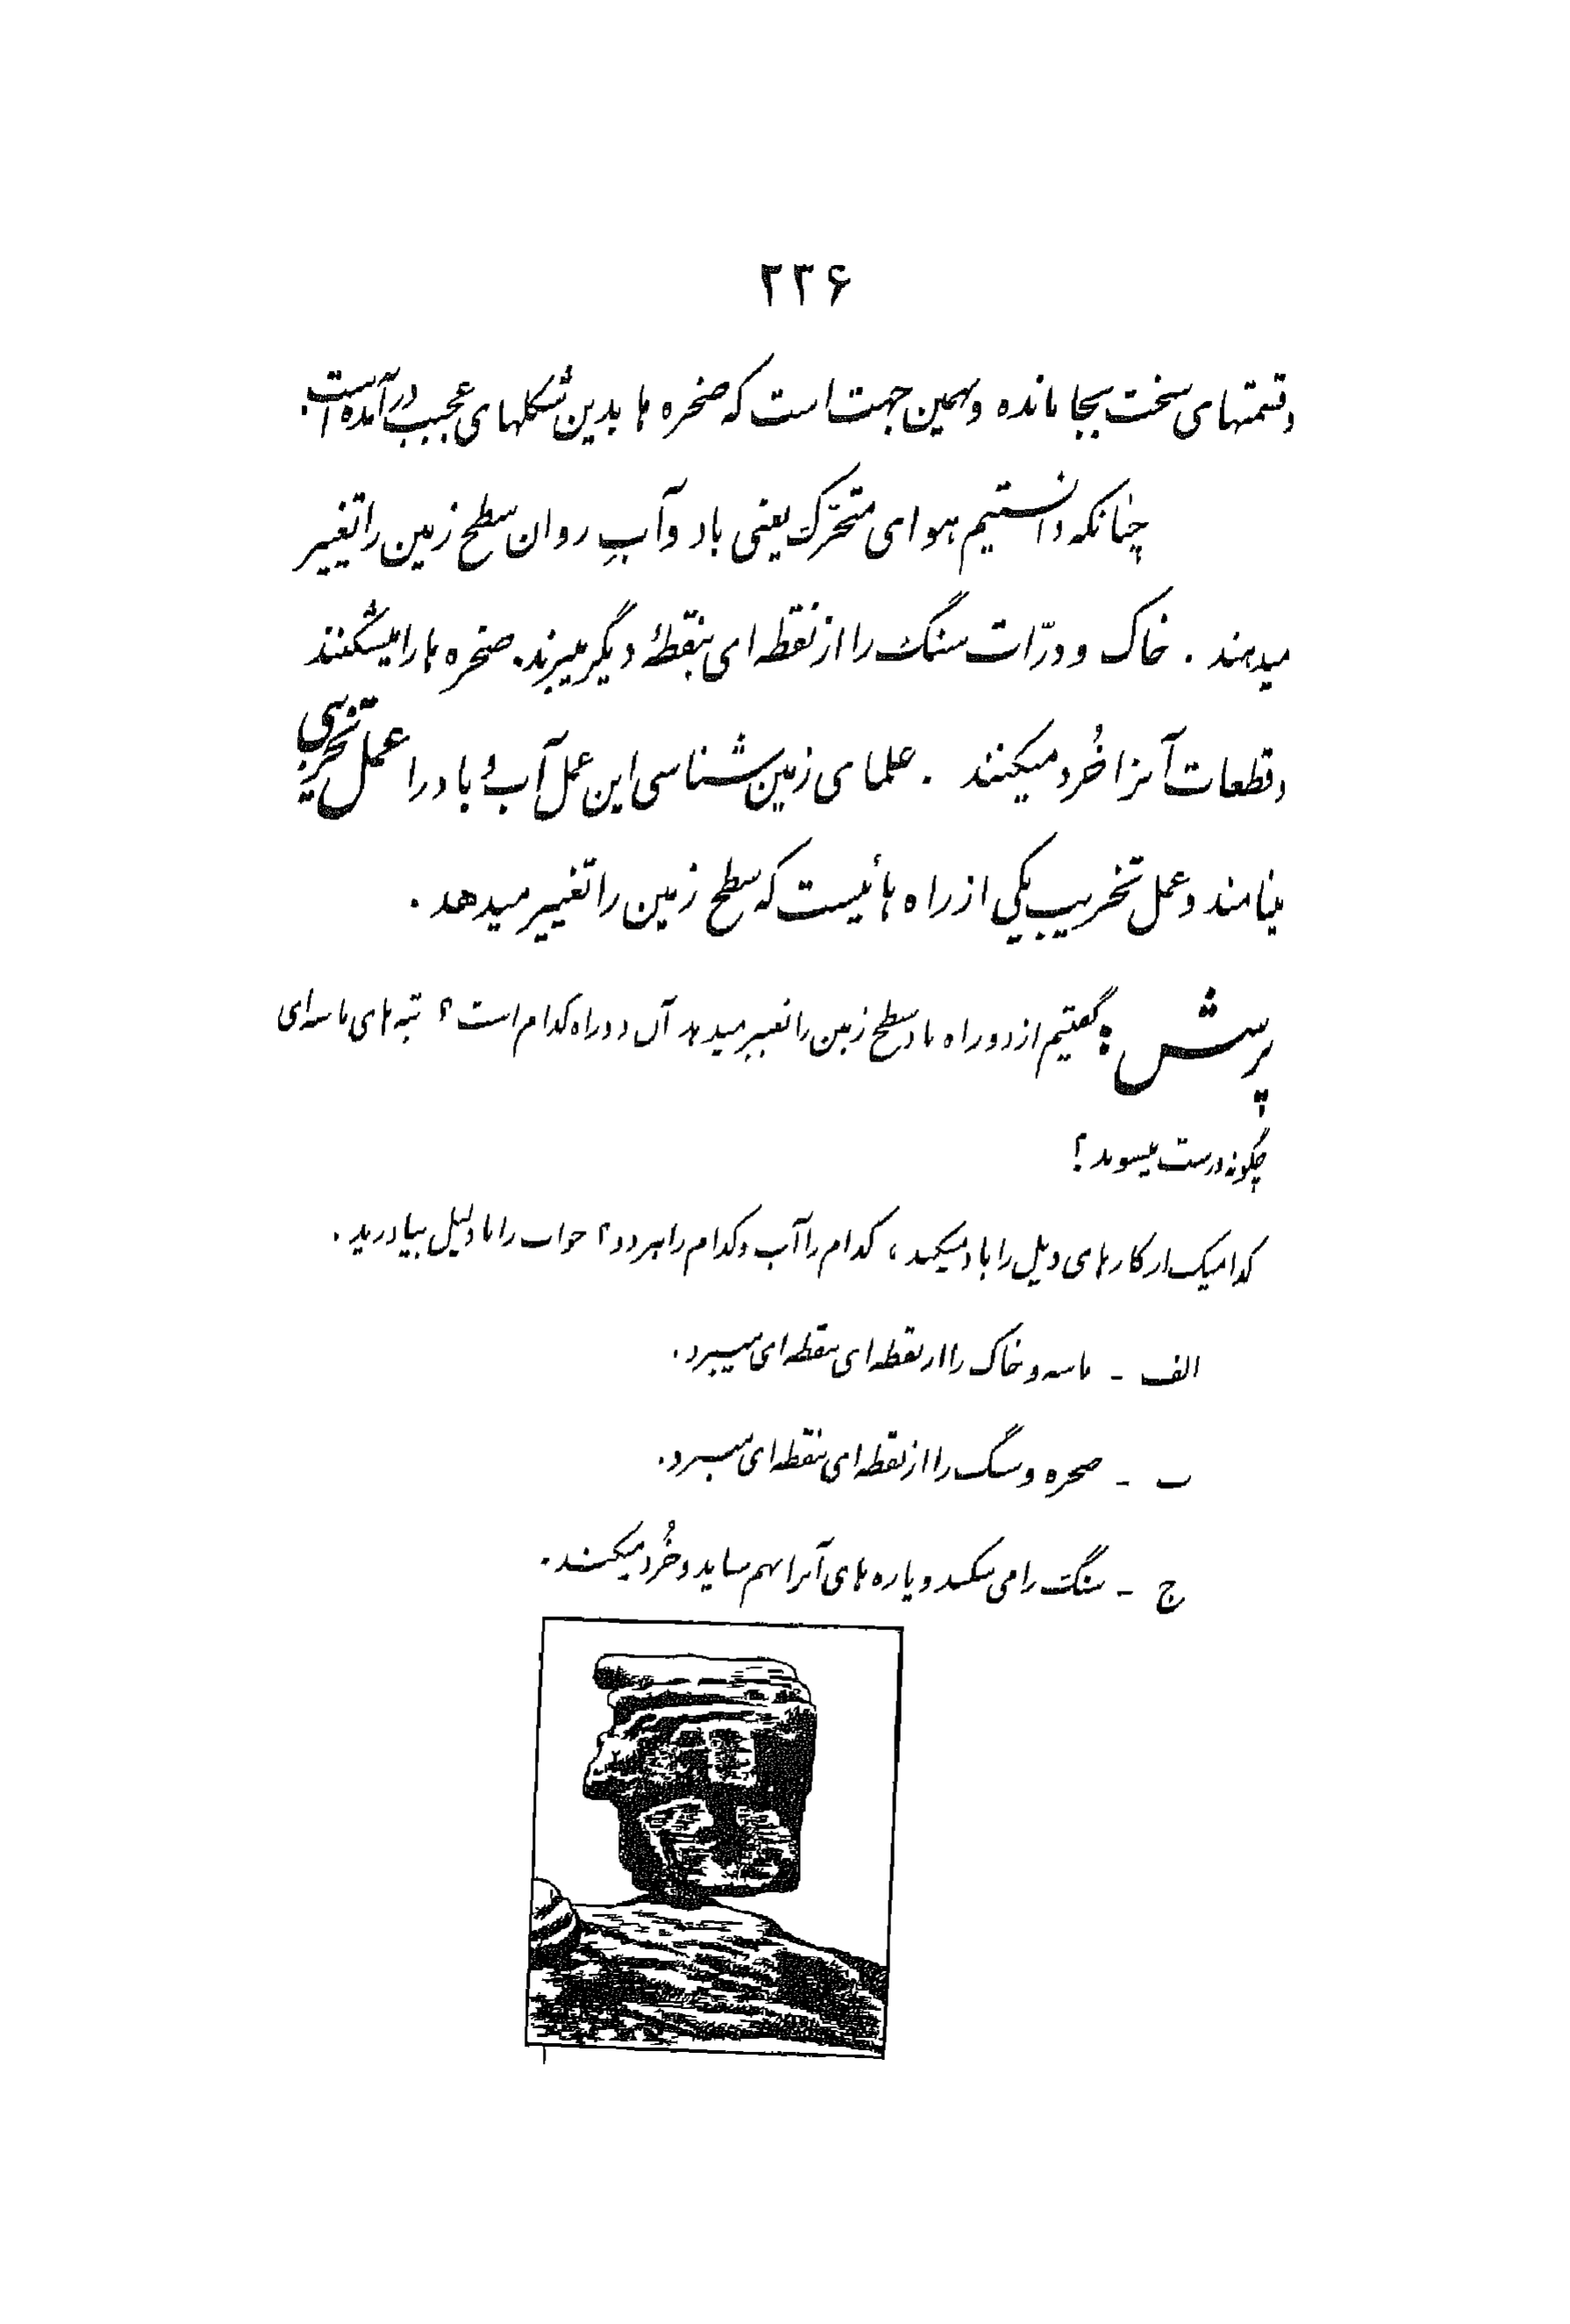 ۲۳۶
و قسمتهای سخت بجا مانده و بهمین جهت است که صخره ها بدین شکلهای عجیب درآمده است.
چنانکه دانستیم هوای متحرّک یعنی باد و آبِ روان سطح زمین را تغییر
میدهند . خاک و ذرّات سنگ را از نقطه ای بنقطهٔ دیگر میبرند. صخره ها را میشکنند
و قطعات آنرا خُرد میکنند . علمای زمین شناسی این عمل آب و باد را عمل تخریبی
مینامند و عمل تخریب یکی از راه هائیست که سطح زمین را تغییر میدهد .
پرسش : گفتیم از دو راه باد سطح زمین را تغییر میدهد آن دو راه کدام است ؟ تپه های ماسه ای
چگونه درست میشوند ؟
کدامیک از کارهای ذیل را باد میکند ، کدام را آب و کدام را هر دو ؟ جواب را با دلیل بیاورید .
الف - ماسه و خاک را از نقطه ای بنقطه ای میبرد.
ب - صخره و سنگ را از نقطه ای بنقطه ای میبرد.
ج - سنگ را می شکند و پاره های آنرا بهم میساید و خُرد میکند .